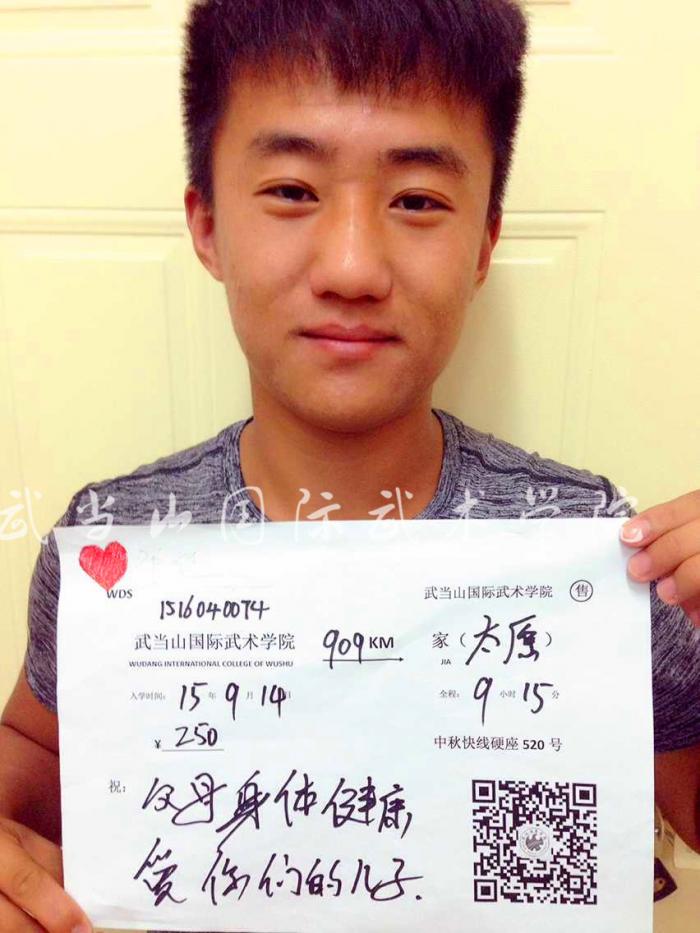 武当山国际武术学院
WDS
武当山国际武术学院 售
1516040074
武当山国际武术学院 909 KM 家（太原）
WUDANG INTERNATIONAL COLLEGE OF WUSHU JIA
入学时间: 15年9月14日 全程: 9小时15分
¥ 250 中秋快线硬座 520 号
祝: 父母身体健康
爱你们的儿子.